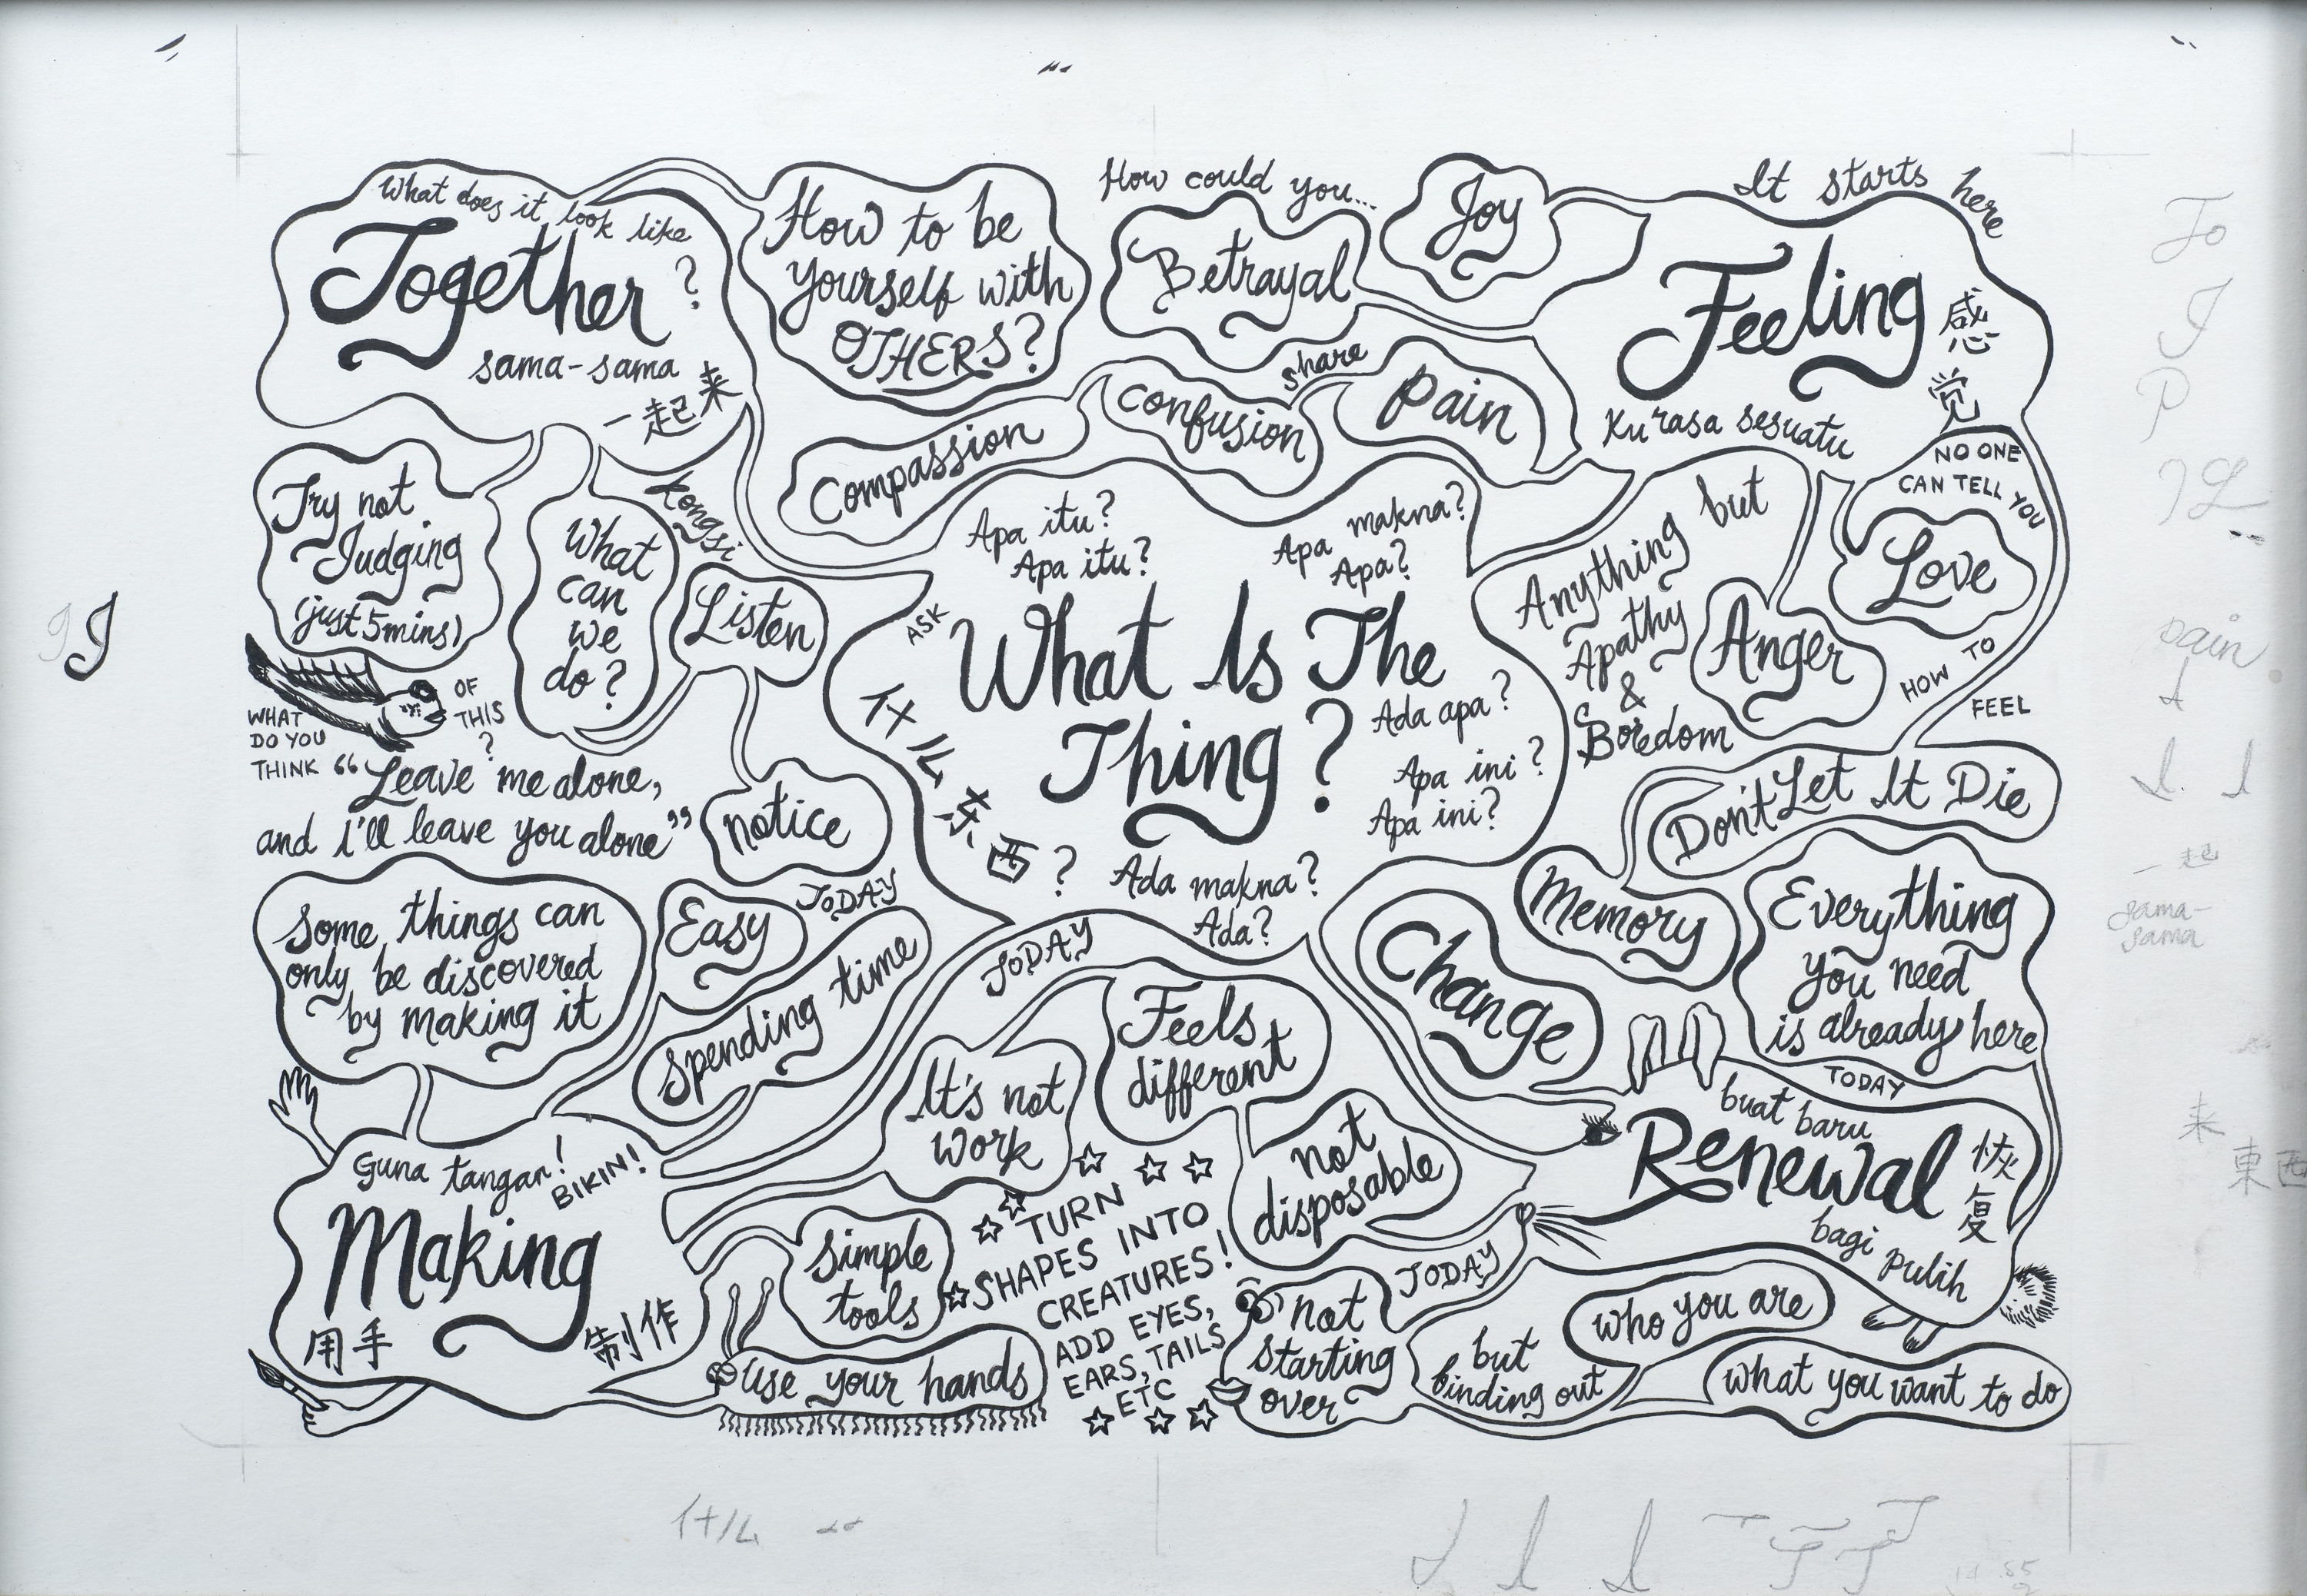 What does it look like
Together?
sama-sama
一起来
How to be
yourself with
OTHERS?
How could you...
Betrayal
Joy
It starts here
Feeling
感觉
Ku rasa sesuatu
share
Compassion
Confusion
Pain
Try not
Judging
(just 5mins)
What
can
we
do?
kongsi
Listen
notice
WHAT
DO YOU
THINK
OF
THIS
?
“Leave me alone,
and I'll leave you alone”
Apa itu?
Apa itu?
Apa makna?
Apa?
ASK
What Is The
Thing?
什么东西?
Ada apa?
Apa ini?
Apa ini?
Ada makna?
Ada?
Anything but
Apathy
&
Boredom
Anger
NO ONE
CAN TELL YOU
Love
HOW TO
FEEL
Don't Let It Die
Memory
Change
Everything
you need
is already here
TODAY
buat baru
Renewal
恢复
bagi pulih
Some things can
only be discovered
by making it
Easy
TODAY
Spending time
TODAY
It's not
work
Feels
different
not
disposable
Guna tangan!
BIKIN!
Making
用手
制作
Simple
tools
use your hands
TURN
SHAPES INTO
CREATURES!
ADD EYES,
EARS, TAILS
ETC
TODAY
not
starting
over
but
finding out
who you are
what you want to do
To
J
P
pain
一起
sama-
sama
来
東西